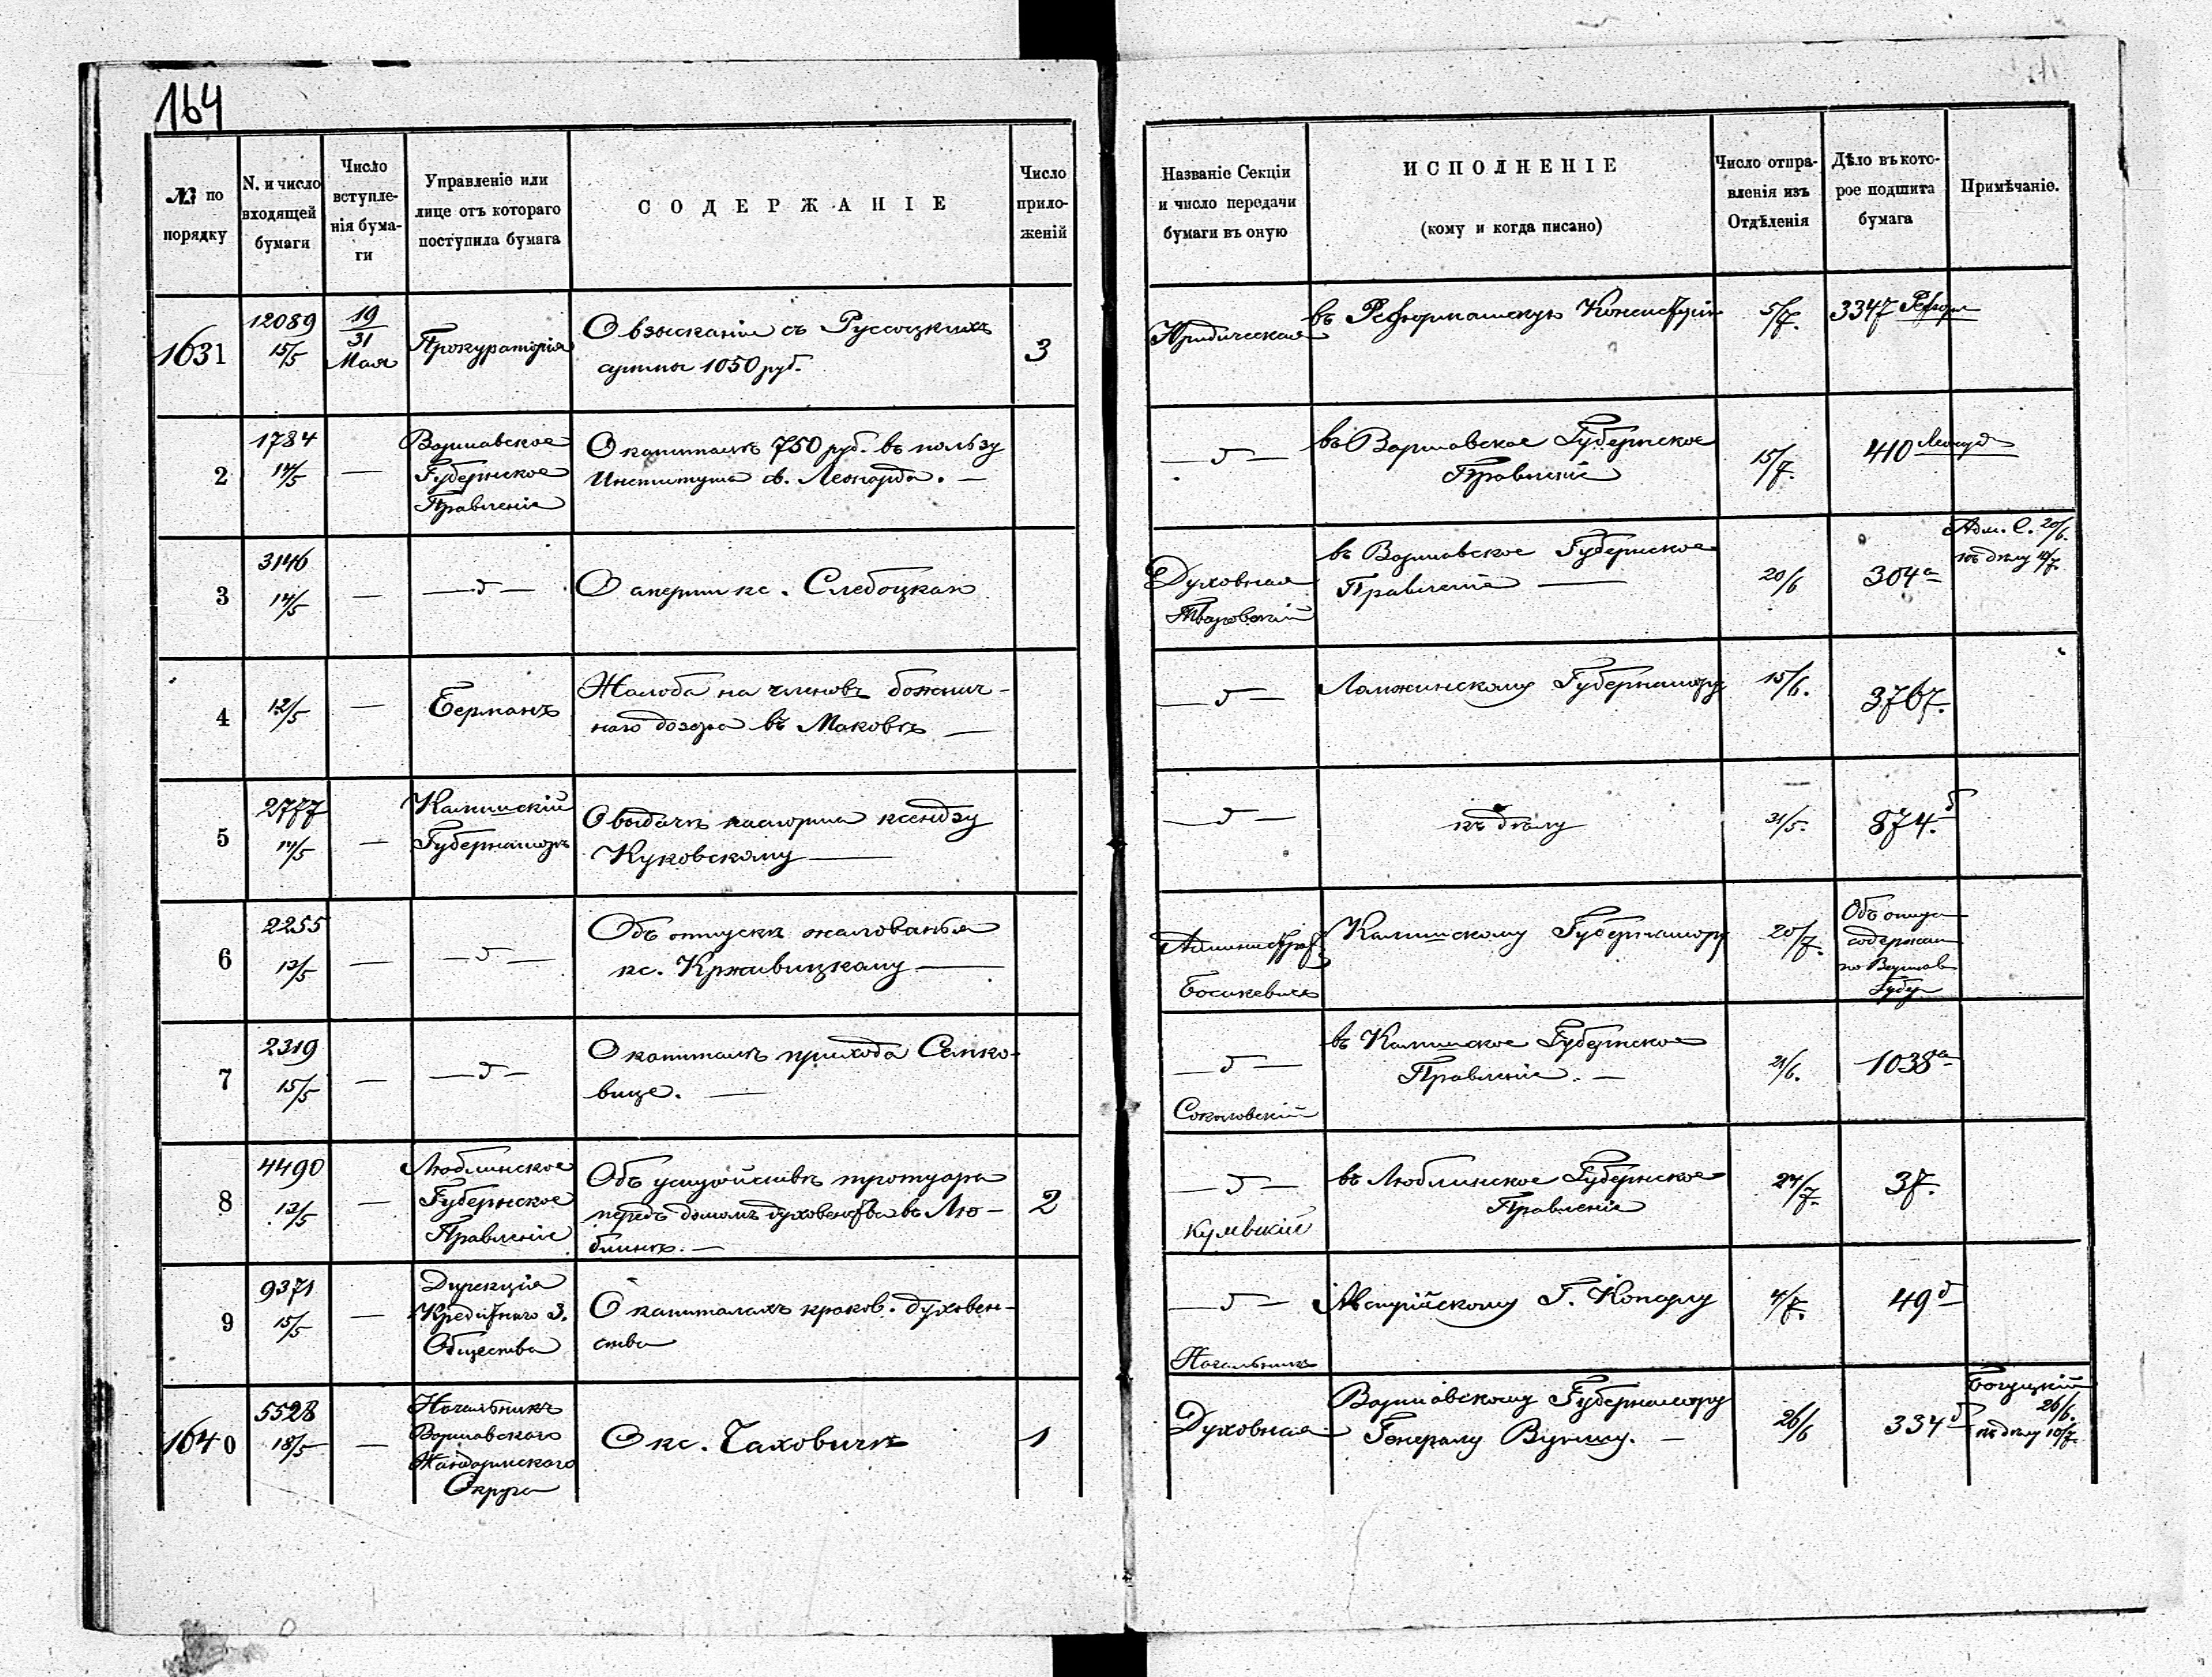 164
№ по порядку
N. и число входящей бумаги
Число вступле-нія бума-ги
Управленіе или лице отъ котораго поступила бумага
СОДЕРЖАНІЕ
Число прило-женій
Названіе Секціи и число передачи бумаги въ оную
ИСПОЛНЕНІЕ
(кому и когда писано)
Число отпра-вленія изъ Отдѣленія
Дѣло въ кото-рое подшита бумага
Примѣчаніе.
1631
12089
15/5
19/31 Мая
Прокураторія
О взысканіи съ Руссоцкихъ
суммы 1050 руб.
3
Юридическая
въ Реформатскую Консисторію
5/7.
3347 Реформ
2
1784
14/5
—
Варшавское
Губернское
Правленіе
О капиталѣ 750 руб. въ пользу
Института св. Леонарда. —
— „ —
въ Варшавское Губернское
Правленіе
15/7.
410
3
3146
14/5
—
— „ —
О смерти кс. Слебоцкаго
Духовная
въ Варшавское Губернское
Правленіе —
20/6
304 а
Адм. С. 20/6.
къ дѣлу
4
12/5
—
Берманъ
Жалоба на членовъ божнич-
наго дозора въ Маковѣ —
— „ —
Ломжинскому Губернатору
15/6.
3767.
5
2777
14/5
—
Калишскій
Губернаторъ
О выдачѣ паспорта ксендзу
Куковскому —
— „ —
къ дѣлу
31/5.
874. б
6
2255
12/5
—
— „ —
Объ отпускѣ жалованья
кс. Крживицкому —
Администрат.
Калишскому Губернатору
20/7.
Объ отпус
содержан
по Варшав
Губер
7
2319
15/5
—
— „ —
О капиталѣ прихода Семко-
вице. —
— „ —
Соколовскій
въ Калишское Губернское
Правленіе. —
21/6.
1038 а
8
4490
12/5
—
Люблинское
Губернское
Правленіе
Объ устройствѣ тротуара
передъ домомъ духовенства въ Лю-
блинѣ. —
2
— „ —
въ Люблинское Губернское
Правленіе
24/7.
37.
9
9371
15/5
—
Дирекція
Кредитнаго З.
Общества
О капиталахъ краков. духовен-
ства
— „ —
Начальникъ
Австрійскому Г. Консулу
4/7.
49 б
1640
5528
18/5
—
Начальникъ
Варшавскаго
Жандармскаго
Округа
О кс. Чаховичѣ
1
Духовная
Варшавскому Губернатору
Генералу
26/6
334 б
Богуцкій
26/6.
къ дѣлу 10/7.